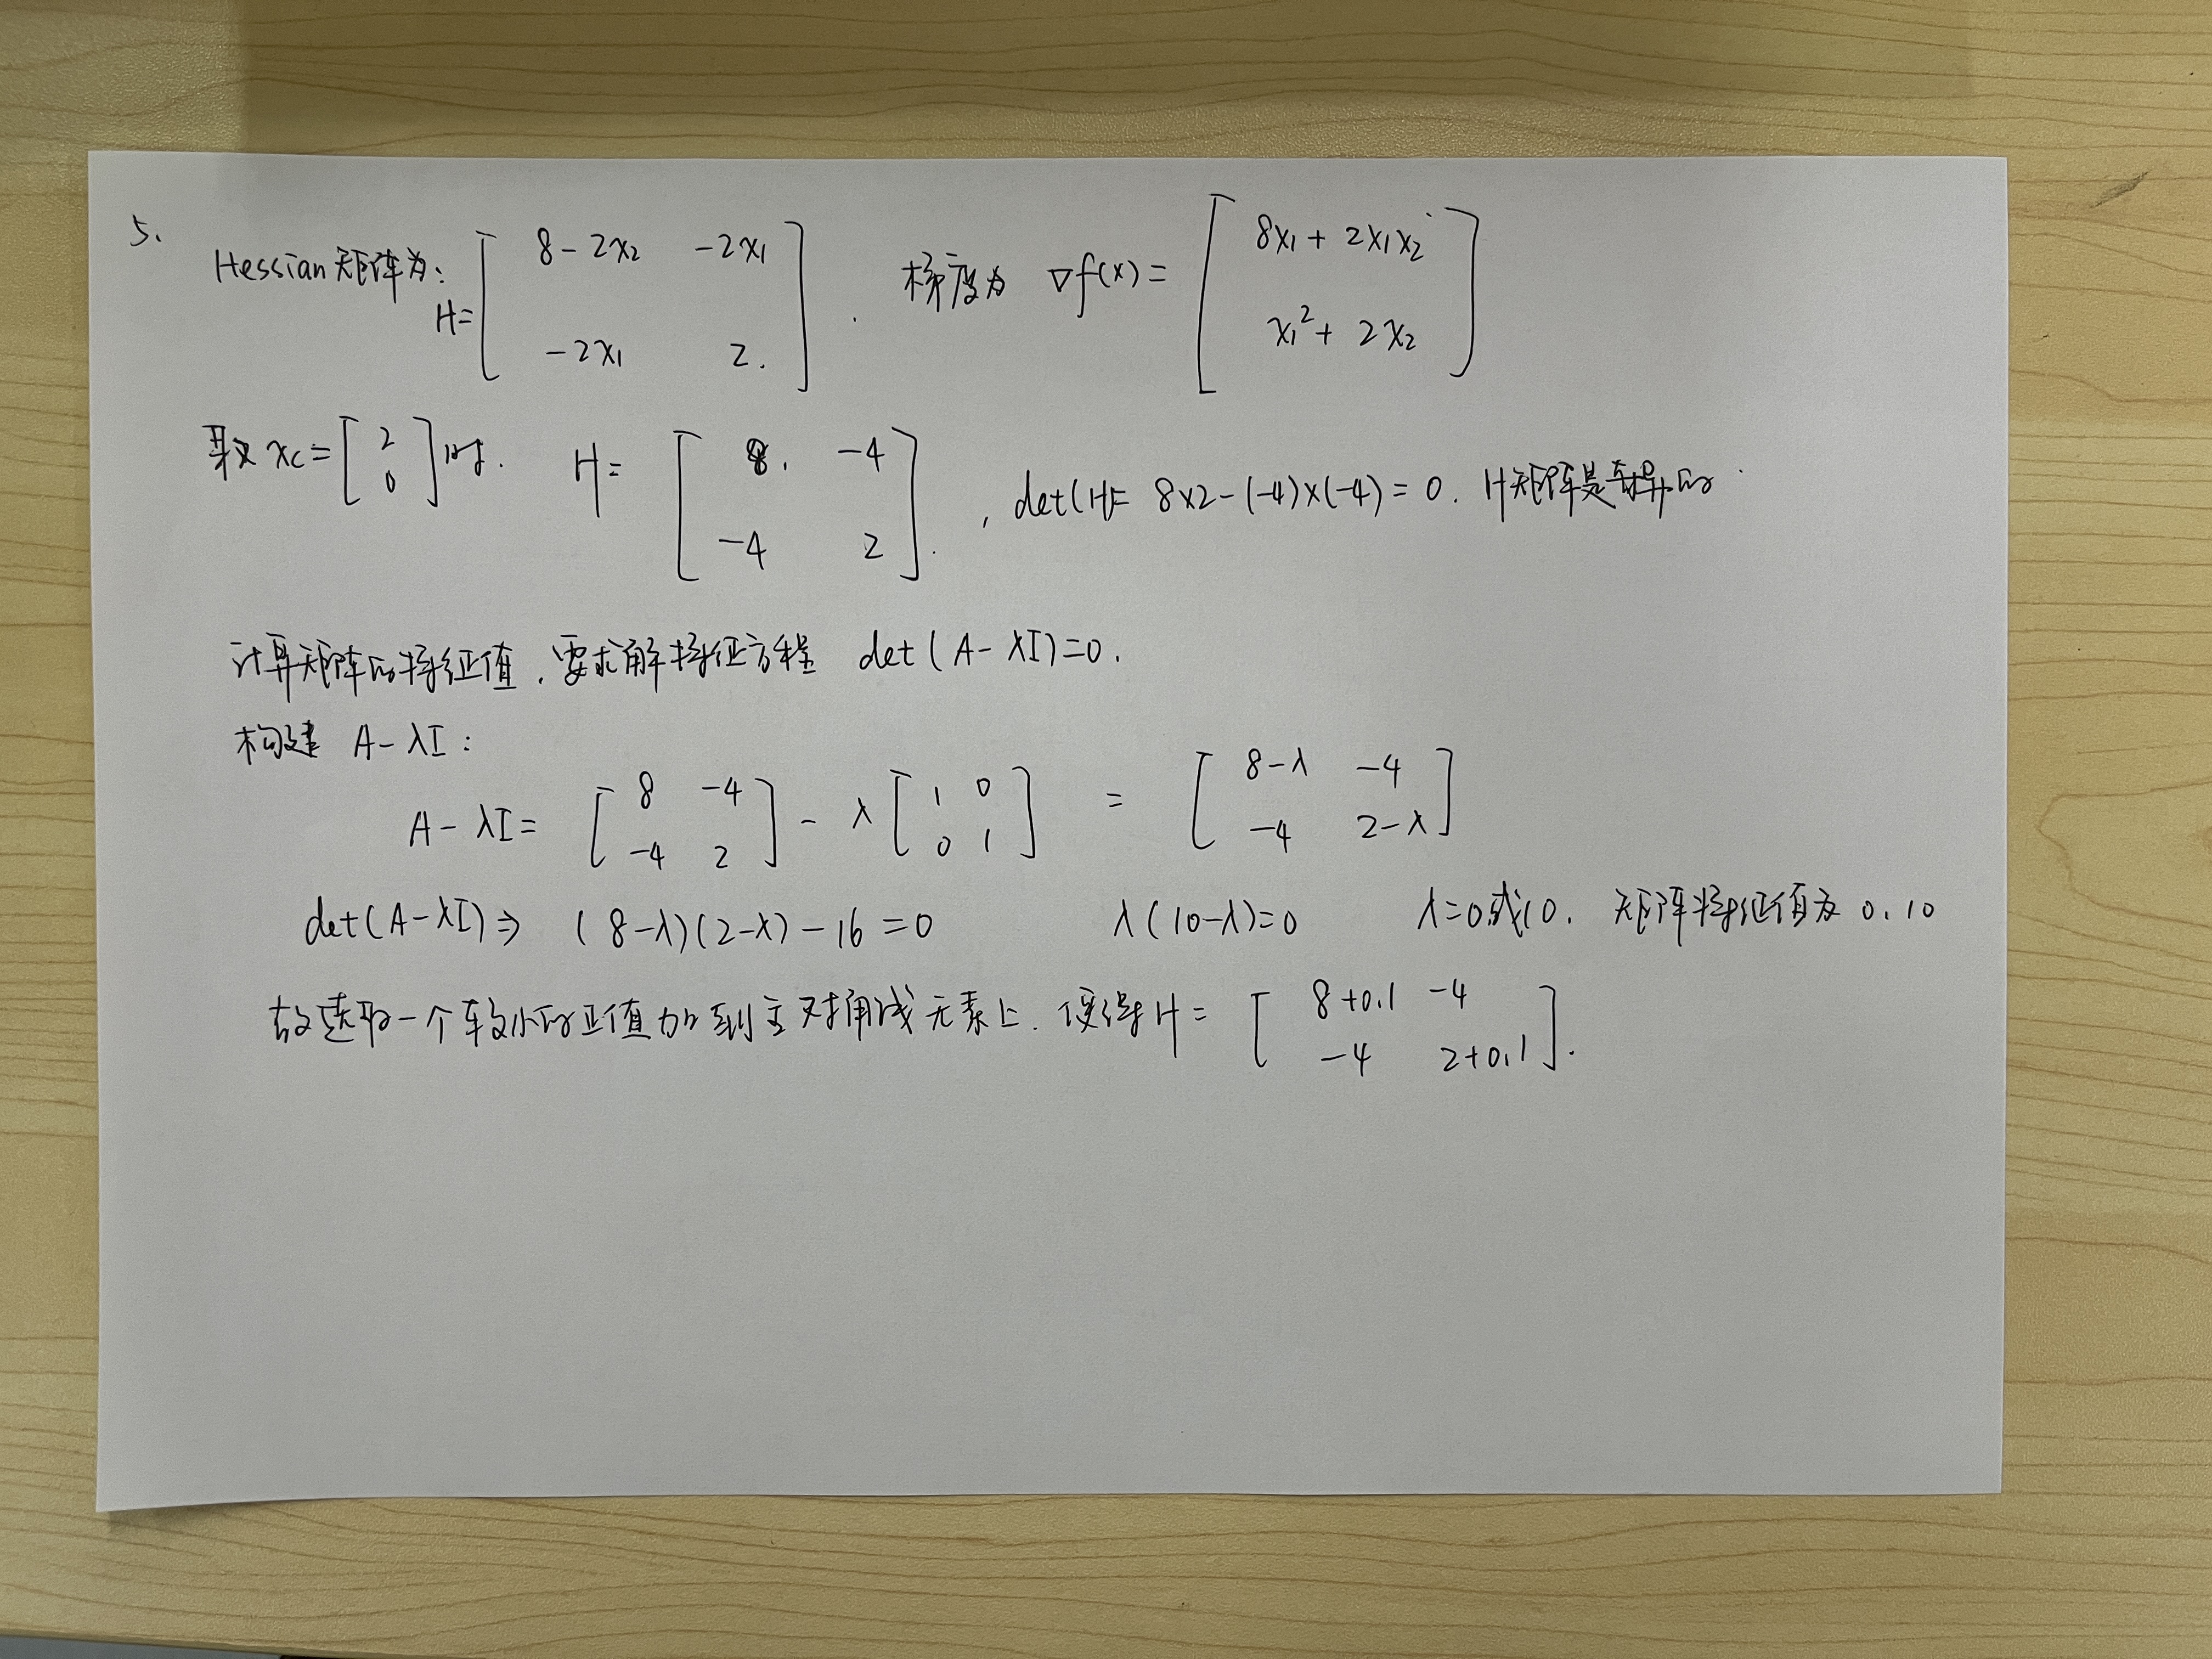 5.
Hessian矩阵为: H= [ 8-2x₂ -2x₁ ; -2x₁ 2. ] . 梯度为 ∇f(x)= [ 8x₁+2x₁x₂ ; x₁²+2x₂ ]
取 xc= [ 2 ; 0 ] 时. H= [ 8. -4 ; -4 2 ]. , det(H)= 8×2-(-4)×(-4)=0. H矩阵是奇异的.
计算矩阵的特征值,要求解特征方程 det(A-λI)=0.
构建 A-λI:
A-λI= [ 8 -4 ; -4 2 ] - λ [ 1 0 ; 0 1 ] = [ 8-λ -4 ; -4 2-λ ]
det(A-λI)⇒ (8-λ)(2-λ)-16=0 λ(10-λ)=0 λ=0或10. 矩阵特征值为 0.10
故选取一个较小的正值加到主对角线元素上. 使得H= [ 8+0.1 -4 ; -4 2+0.1 ].